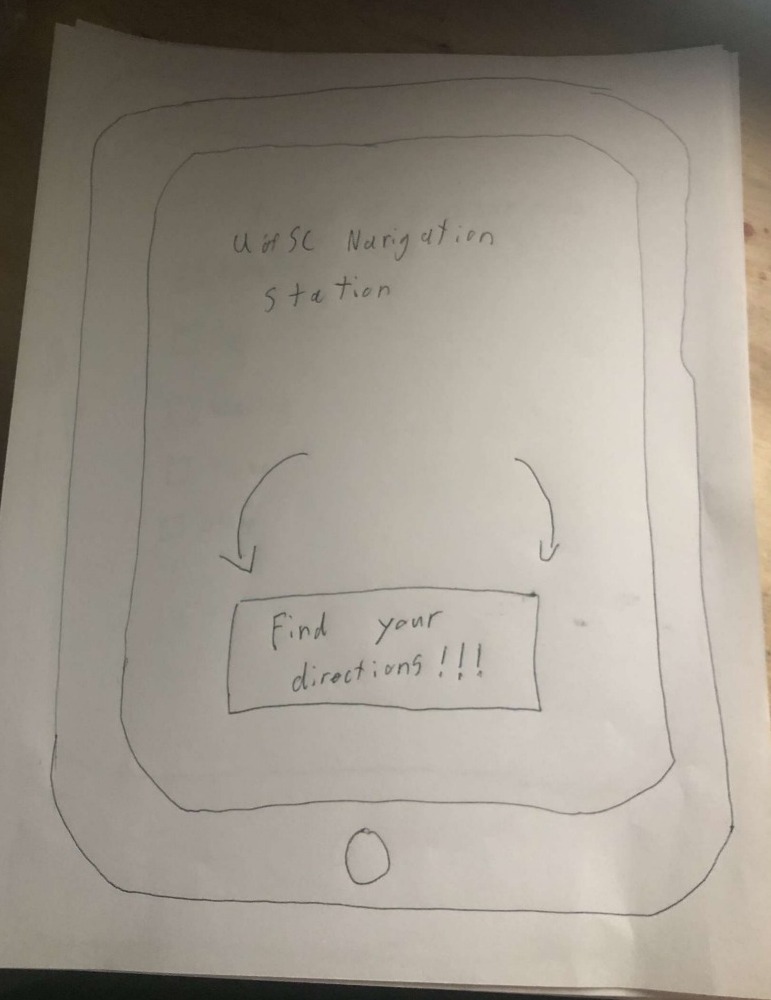 U of SC Navigation
Station
Find your
directions!!!